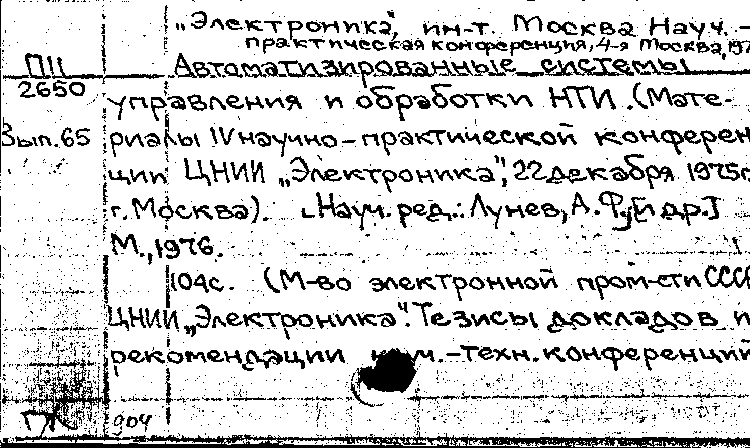 „Электроника", ин-т. Москва Науч.-
практическая конференция, 4-я Москва, 197
П11 Автоматизированные системы
2650 управления и обработки НТИ. (Мате-
Вып. 65 риалы IV научно-практической конферен
ции ЦНИИ „Электроника", 22 декабря 1975г
г. Москва). [Науч. ред.: Лунев, А. Ф. [и др.]
М., 1976.
104с. (М-во электронной пром-сти СССР
ЦНИИ „Электроника". Тезисы докладов и
рекомендации науч.-техн. конференций
904